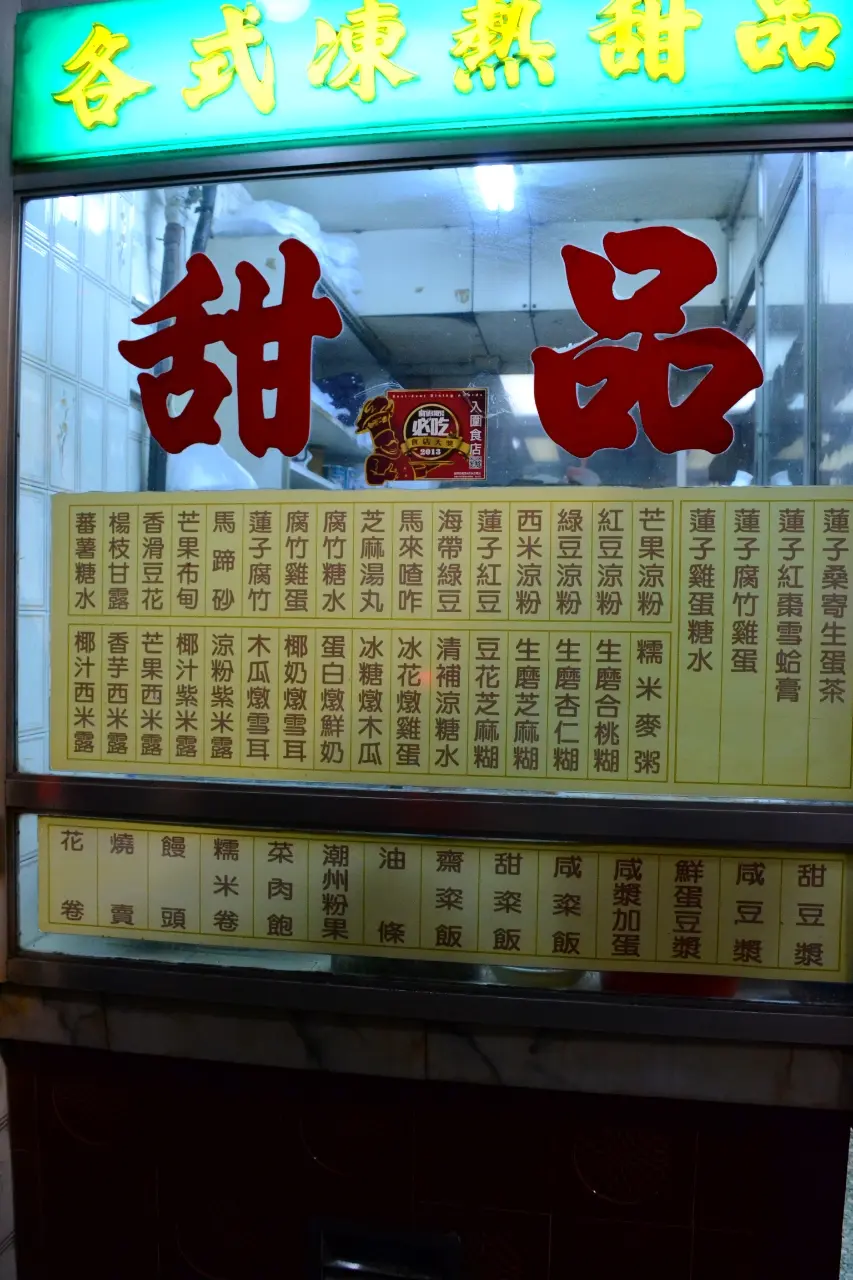 各式凍熱甜品
甜品
必吃
食店大獎
2013
入圍食店
蓮子桑寄生蛋茶
蓮子紅棗雪蛤膏
蓮子腐竹雞蛋
蓮子雞蛋糖水
芒果涼粉
紅豆涼粉
綠豆涼粉
西米涼粉
蓮子紅豆
海帶綠豆
馬來喳咋
芝麻湯丸
腐竹糖水
腐竹雞蛋
蓮子腐竹
馬蹄砂
芒果布甸
香滑豆花
楊枝甘露
蕃薯糖水
糯米麥粥
生磨合桃糊
生磨杏仁糊
生磨芝麻糊
豆花芝麻糊
清補涼糖水
冰花燉雞蛋
冰糖燉木瓜
蛋白燉鮮奶
椰奶燉雪耳
木瓜燉雪耳
涼粉紫米露
椰汁紫米露
芒果西米露
香芋西米露
椰汁西米露
甜豆漿
咸豆漿
鮮蛋豆漿
咸漿加蛋
咸粢飯
甜粢飯
齋粢飯
油條
潮州粉果
菜肉飽
糯米卷
饅頭
燒賣
花卷